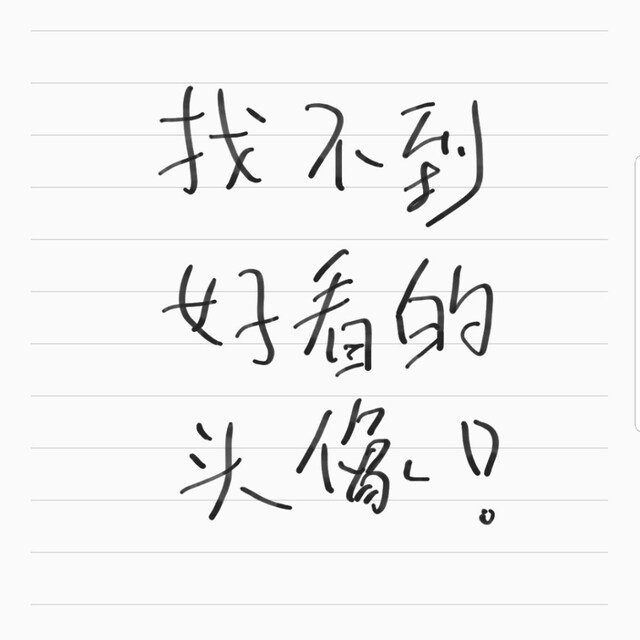 找不到
好看的
头像！